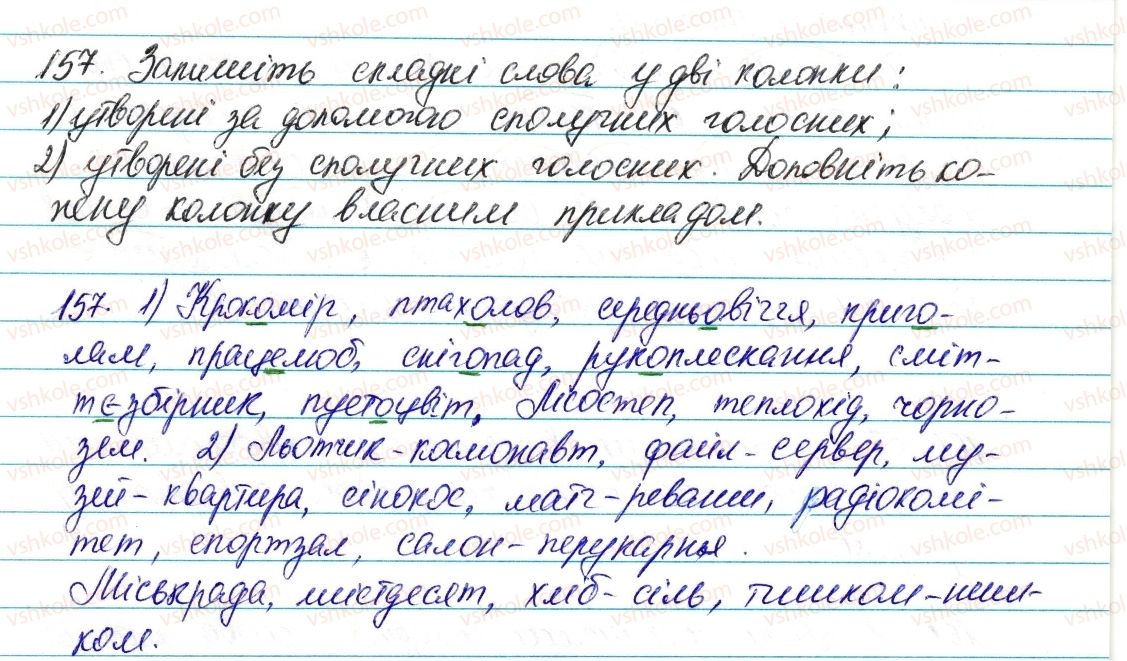 157. Запишіть складні слова у дві колонки:
1) утворені за допомогою сполучних голосних;
2) утворені без сполучних голосних. Доповніть ко-
жну колонку власним прикладом.
157. 1) Крокомір, птахолов, середньовіччя, криго-
лам, працелюб, снігопад, рукоплескання, сміт-
тєзбірник, пустоцвіт. Лісостеп, теплохід, чорно-
зем. 2) Льотчик-космонавт, файл-сервер, му-
зей-квартира, сінокос, матч-реванш, радіокомі-
тет, спортзал, салон-перукарня.
Міськрада, шістдесят, хліб-сіль, тишком-ниш-
ком.